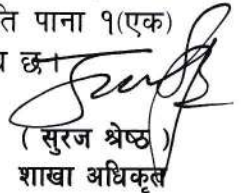 ति पाना १(एक)
छ।
( सुरज श्रेष्ठ )
शाखा अधिकृत